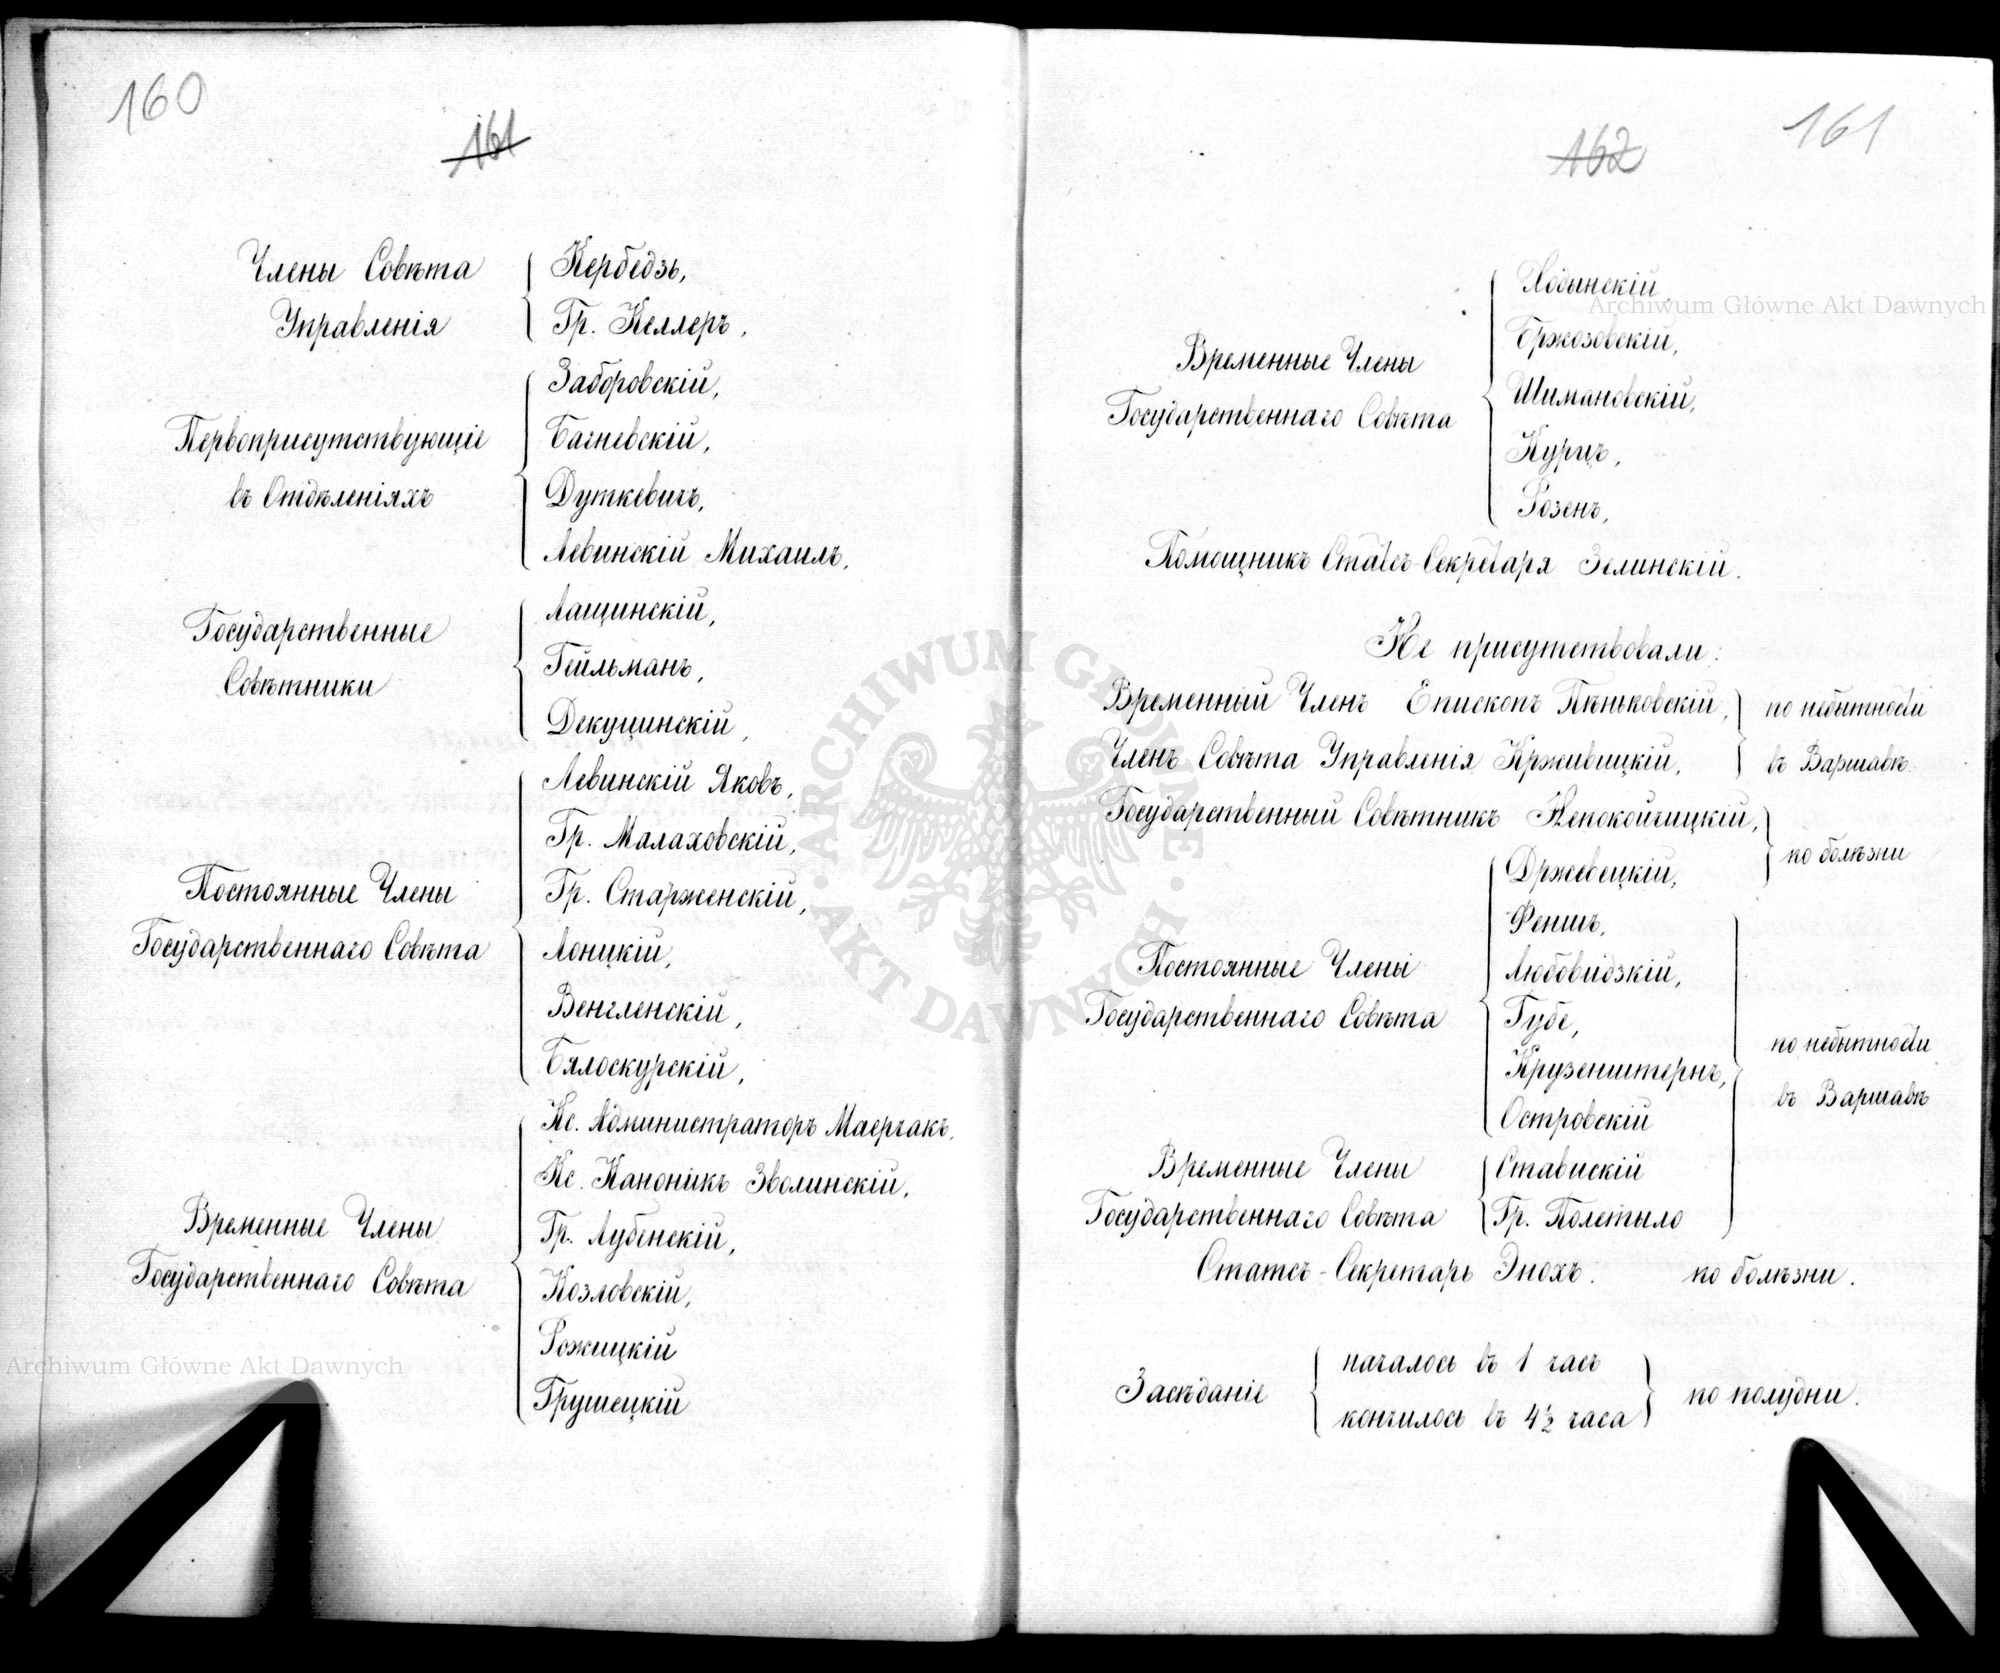 160
161
Члены Совѣта
Управленія
Кербедзь,
Гр. Келлеръ,
Первоприсутствующіе
въ Отдѣленіяхъ
Заборовскій,
Багневскій,
Дуткевичъ,
Левинскій Михаилъ,
Государственные
Совѣтники
Лащинскій,
Гейльманъ,
Декуцинскій,
Постоянные Члены
Государственнаго Совѣта
Левинскій Яковъ,
Гр. Малаховскій,
Гр. Старженскій,
Лонцкій,
Венгленскій,
Бялоскурскій,
Временные Члены
Государственнаго Совѣта
Кс. Администраторъ Маерчакъ,
Кс. Каноникъ Зволинскій,
Гр. Лубенскій,
Козловскій,
Рожицкій
Грушецкій
Archiwum Główne Akt Dawnych
161
162
Временные Члены
Государственнаго Совѣта
Ходынскій,
Бржозовскій,
Шимановскій,
Курцъ,
Розенъ,
Помощникъ Статсъ-Секретаря Зелинскій.
Не присутствовали:
Временный Членъ Епископъ Пѣньковскій,
Членъ Совѣта Управленія Крживицкій,
по небытности
въ Варшавѣ.
Государственный Совѣтникъ Непокойчицкій,
Држевецкій,
по болѣзни
Постоянные Члены
Государственнаго Совѣта
Феншъ,
Любовидзкій,
Губе,
Крузенштернъ,
Островскій
Временные Члены
Государственнаго Совѣта
Ставискій
Гр. Полетыло
по небытности
въ Варшавѣ
Статсъ-Секретарь Энохъ. по болѣзни.
Засѣданіе
началось въ 1 часъ
кончилось въ 4½ часа
по полудни.
Archiwum Główne Akt Dawnych
ARCHIWUM GŁÓWNE · AKT DAWNYCH ·